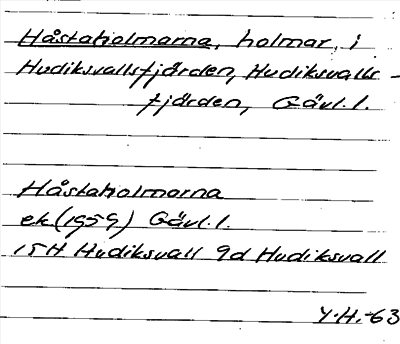 Håstaholmarna, holmar, i
Hudiksvallsfjärden, Hudiksvalls-
fjärden, Gävl.l.
Håstaholmarna
ek.(1959) Gävl.l.
15H Hudiksvall 9d Hudiksvall
Y.H.-63